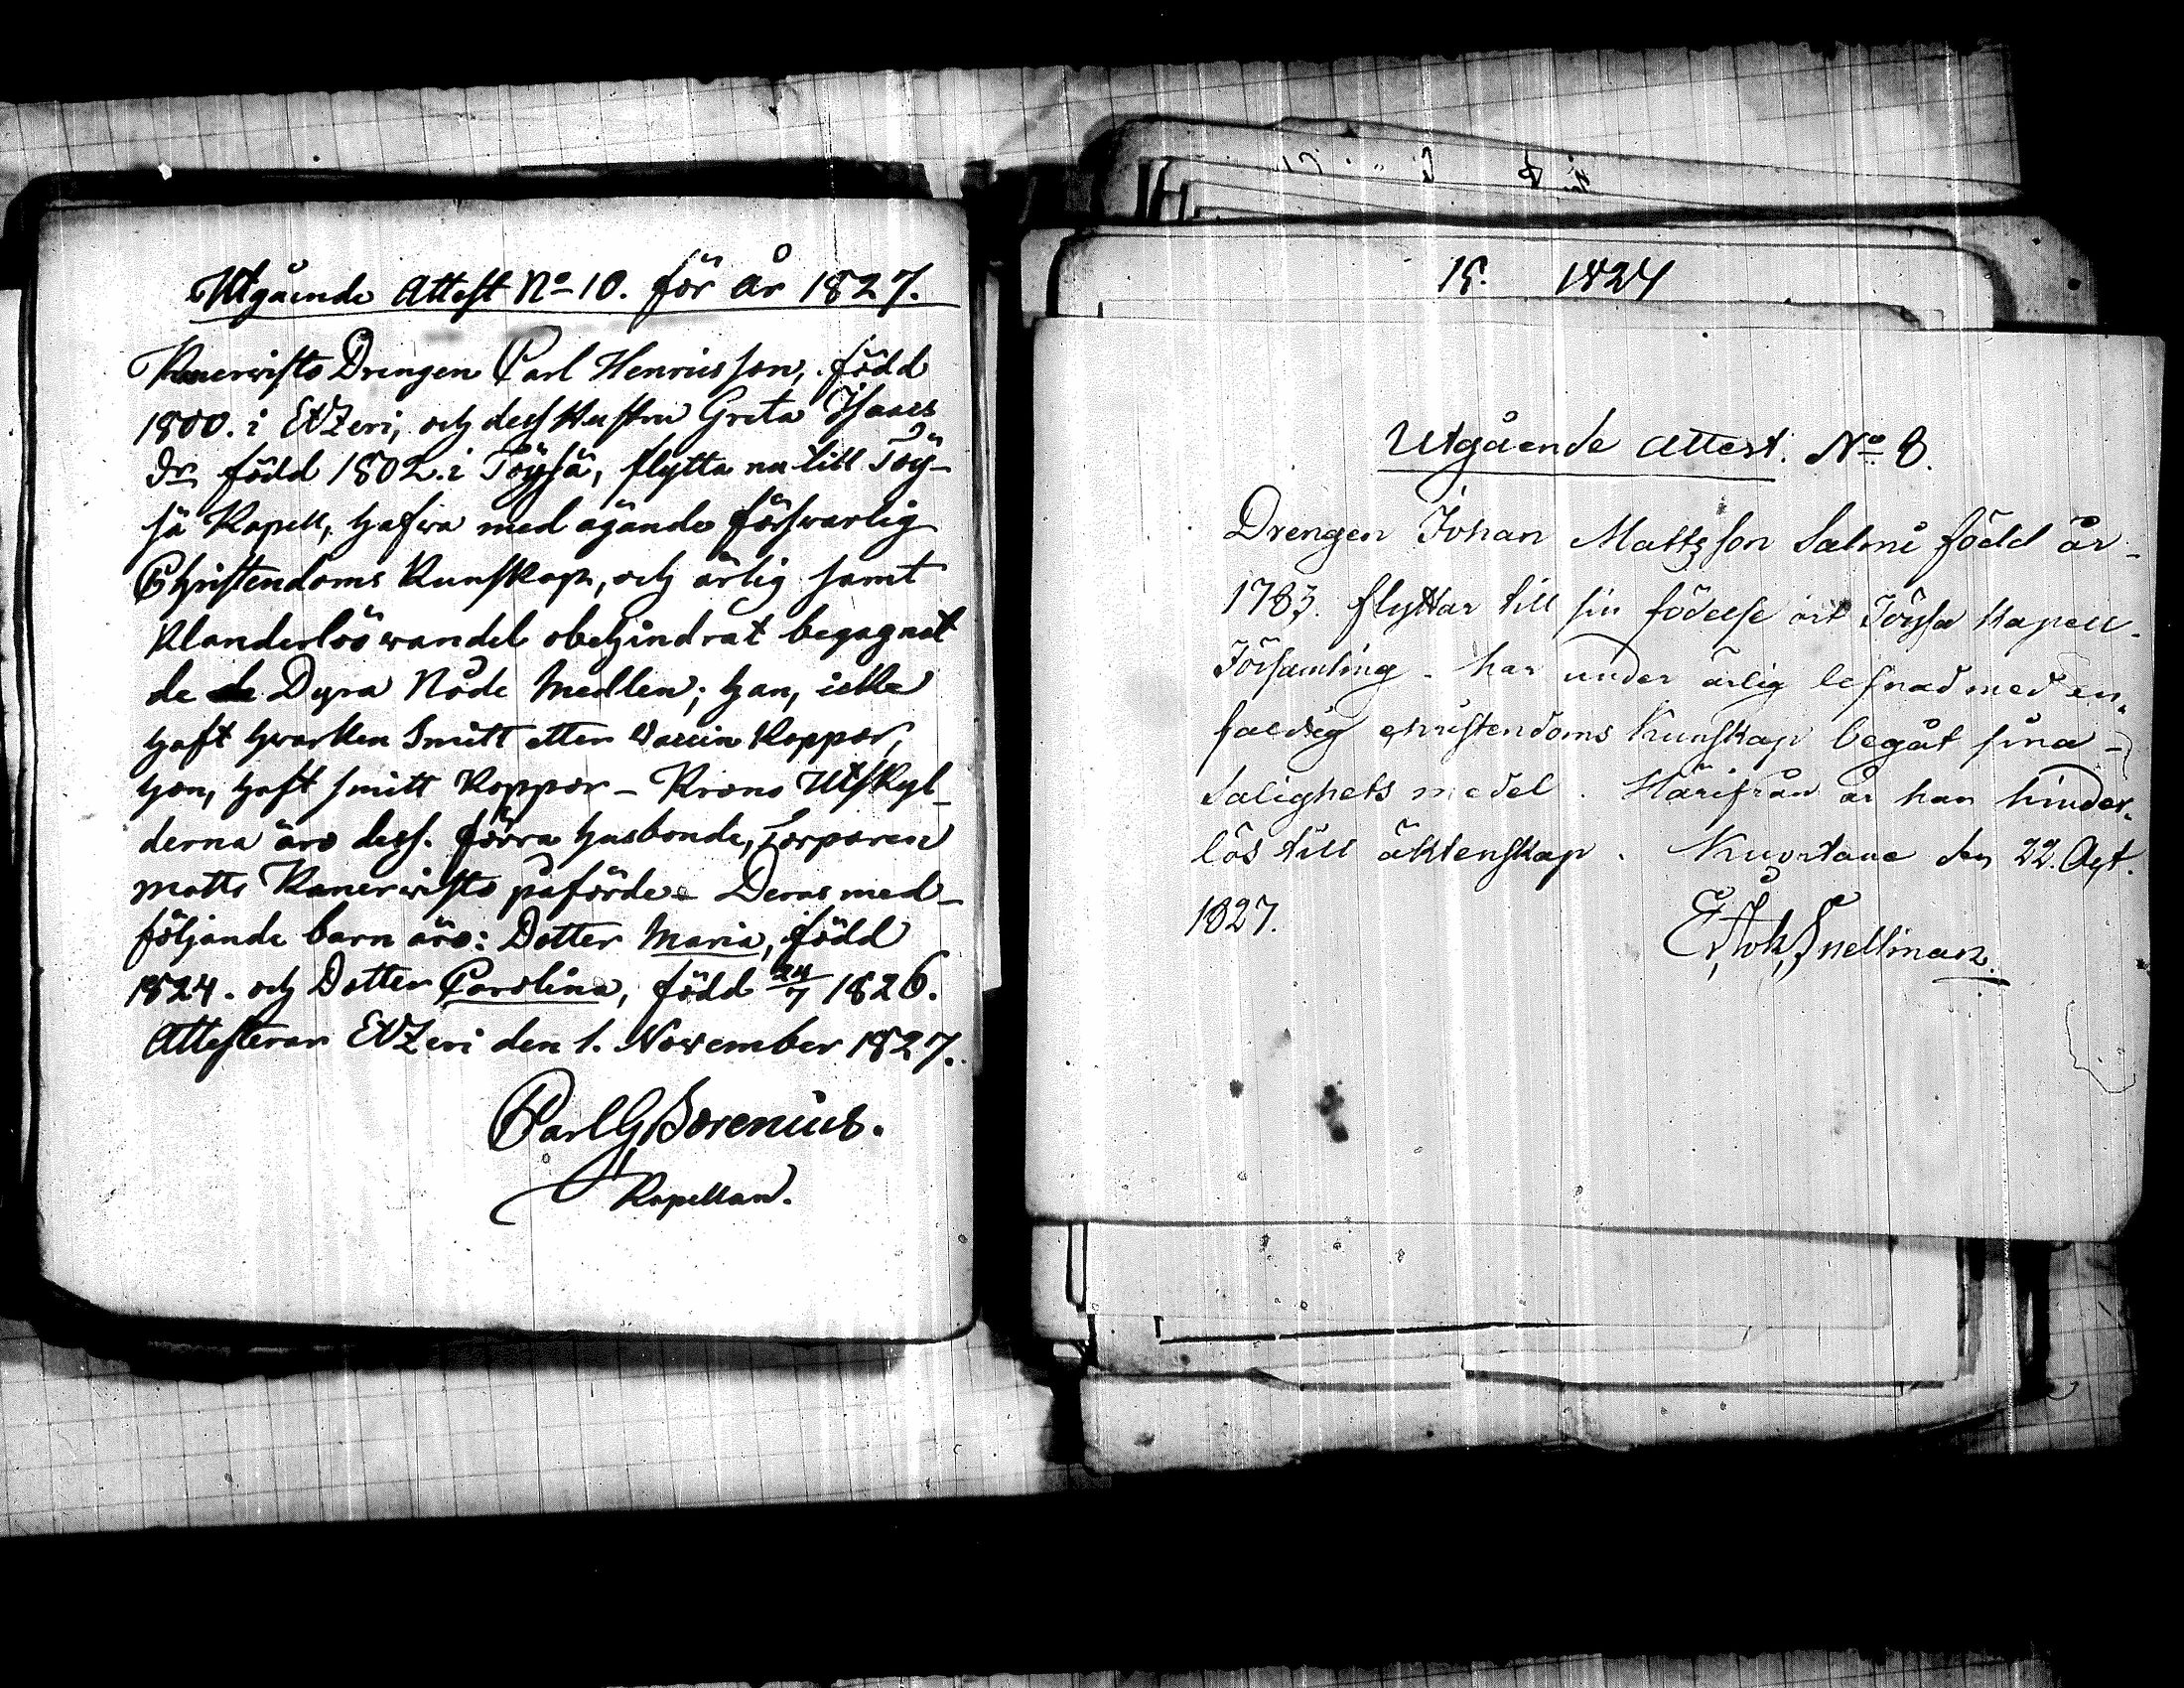 Utgående Attest No 10. för år 1827.
Kanerwisto Drengen Carl Henricsson, född
1800. i Etzeri, och dess Hustru Greta Isaacs
dr född 1802. i Töysä, flytta nu till Töy-
sä Kapell, hafwa med ägande förswarlig
Christendoms Kunskap, och ärlig samt
Klanderlös wandel obehindrat begagnat
de Dyra Nåde Medlen; han, icke
haft hwarken Smitt eller Vaccin Koppor,
hon, haft smitt Koppor - Krono Utskyl-
derna äro dess. förra husbonde, Torparen
Matts Kanerwisto påförde - Deras med-
följande barn äro: Dotter Maria, född
1824. och Dotter Carolina, född 24/7 1826.
Attesterar Etzeri den 1. November 1827.
Carl G Borenius.
Kapellan.
15. 1827
Utgående attest. No 8.
Drengen Johan Mattsson Salmi född år
1783. flyttar till sin födelse ort Töysä Kapell
Församling. har under ärlig lefnad med en-
faldig christendoms Kunskap begåt sina
Salighets medel. Härifrån är han hinder-
lös till äktenskap. Kuortane den 22. Oct.
1827.
Snellman.